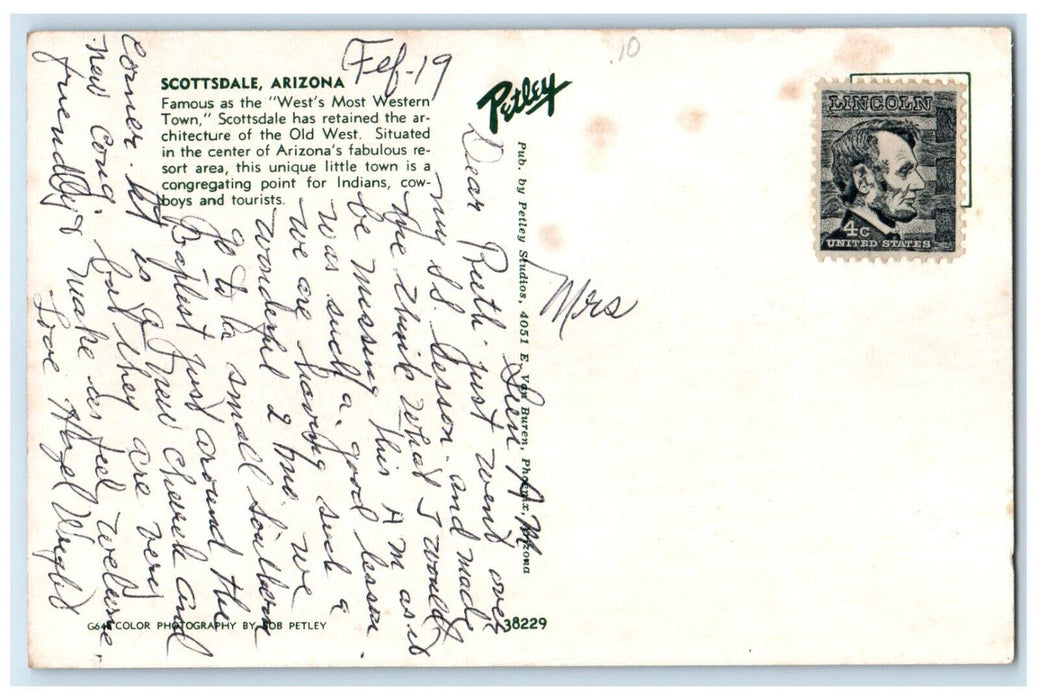 .10
SCOTTSDALE, ARIZONA
Famous as the "West's Most Western
Town," Scottsdale has retained the ar-
chitecture of the Old West. Situated
in the center of Arizona's fabulous re-
sort area, this unique little town is a
congregating point for Indians, cow-
boys and tourists.
Feb-19
Petley
Pub. by Petley Studios, 4051 E. Van Buren, Phoenix, Arizona
LINCOLN
4c
UNITED STATES
Mrs
Sun A.M.
Dear Ruth just went over
my S.S. lesson. and made
me think what I would
be missing this A M as it
was such a good lesson.
we are having such a
wonderful 2 mo. we
go to the small Southern
Baptest just around the
Corner. It is a new church and
new cong. but they are very
friendly & make us feel welcome.
Love Hazel Wright
G64 COLOR PHOTOGRAPHY BY BOB PETLEY
38229